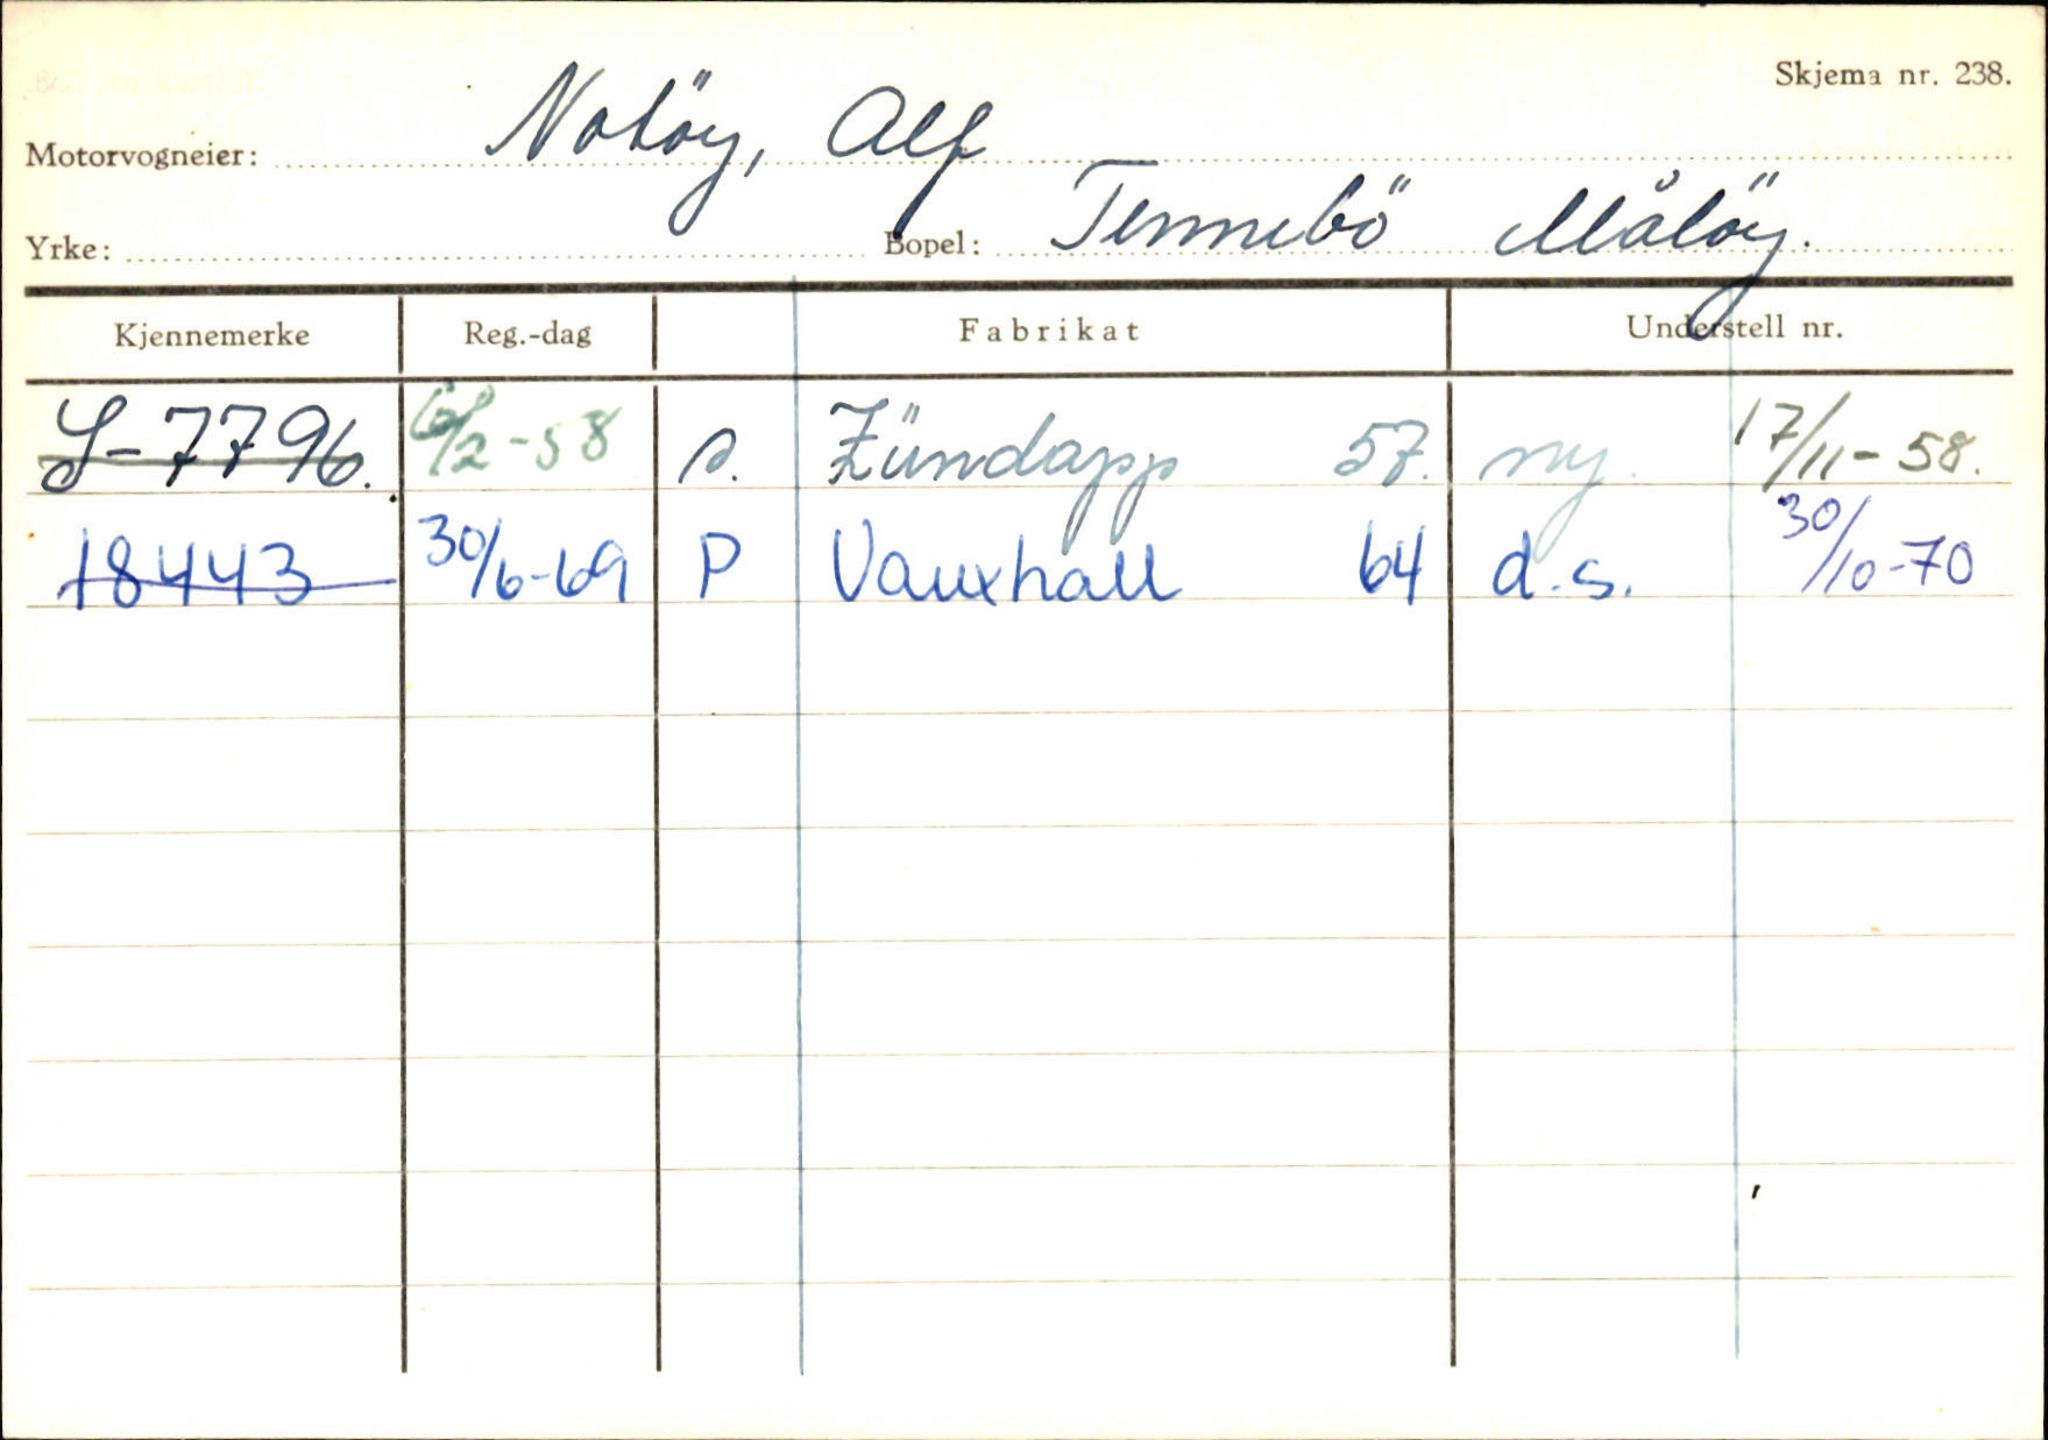 Skjema nr. 238.
Motorvogneier: Notöy, Alf
Yrke: Bopel: Tennebö Målöy.
Kjennemerke Reg.-dag Fabrikat Understell nr.
S-7796. /2-58 s. Zündapp 57. ny. 17/11-58.
18443 30/6-69 P Vauxhall 64 d.s. 30/10-70